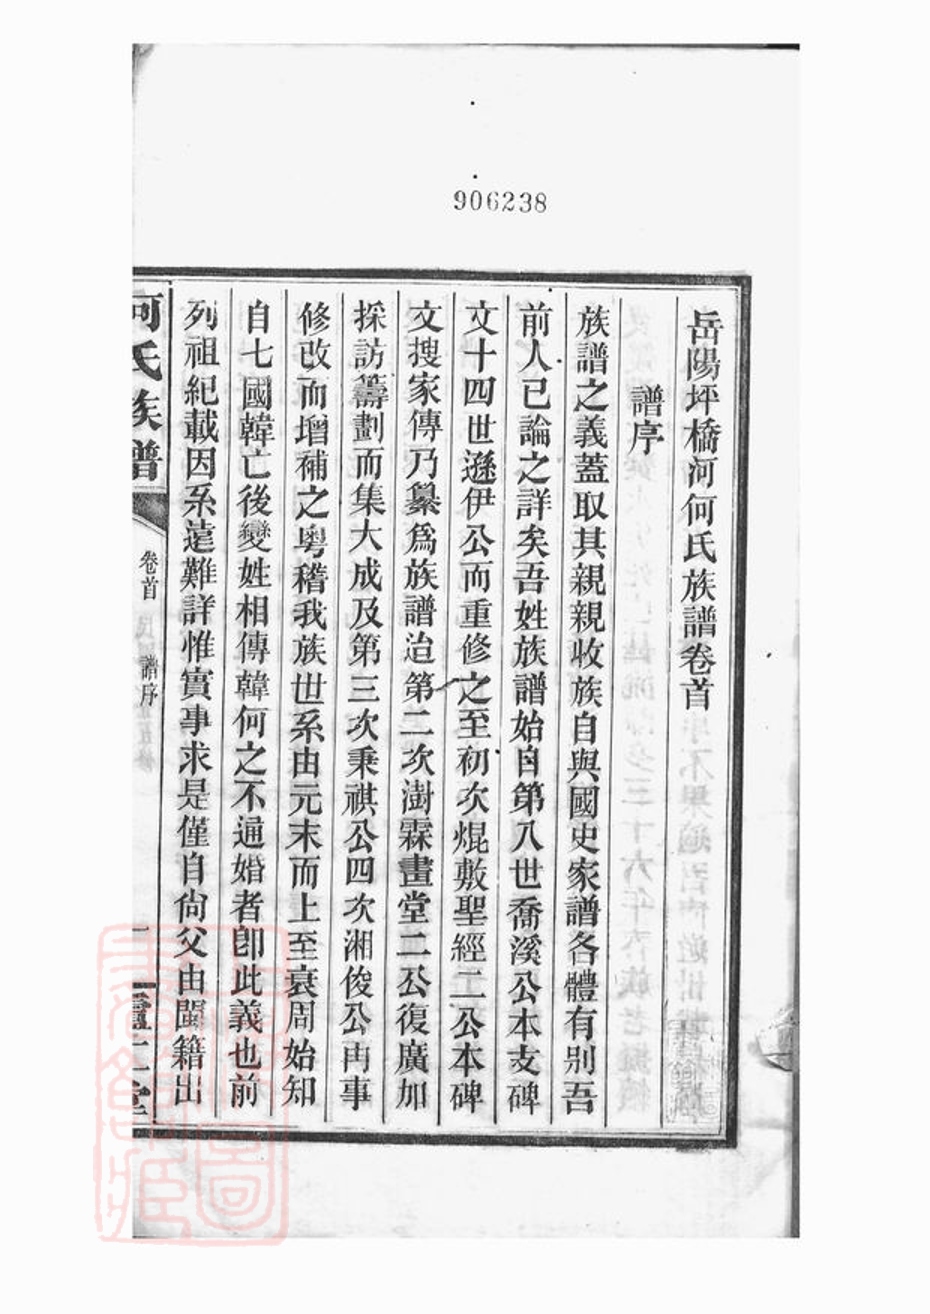 906238
岳陽坪橋河何氏族譜卷首
譜序
族譜之義蓋取其親親收族自與國史家譜各體有別吾
前人已論之詳矣吾姓族譜始自第八世喬溪公本支碑
文十四世遜伊公而重修之至初次焜敷聖經二公本碑
文搜家傳乃纂爲族譜迨第二次澍霖畫堂二公復廣加
採訪籌劃而集大成及第三次秉祺公四次湘俊公再事
修改而增補之粵稽我族世系由元末而上至衰周始知
自七國韓亡後變姓相傳韓何之不通婚者卽此義也前
列祖紀載因系遠難詳惟實事求是僅自尙父由閩籍出
何氏族譜
卷首 譜序
一
堂